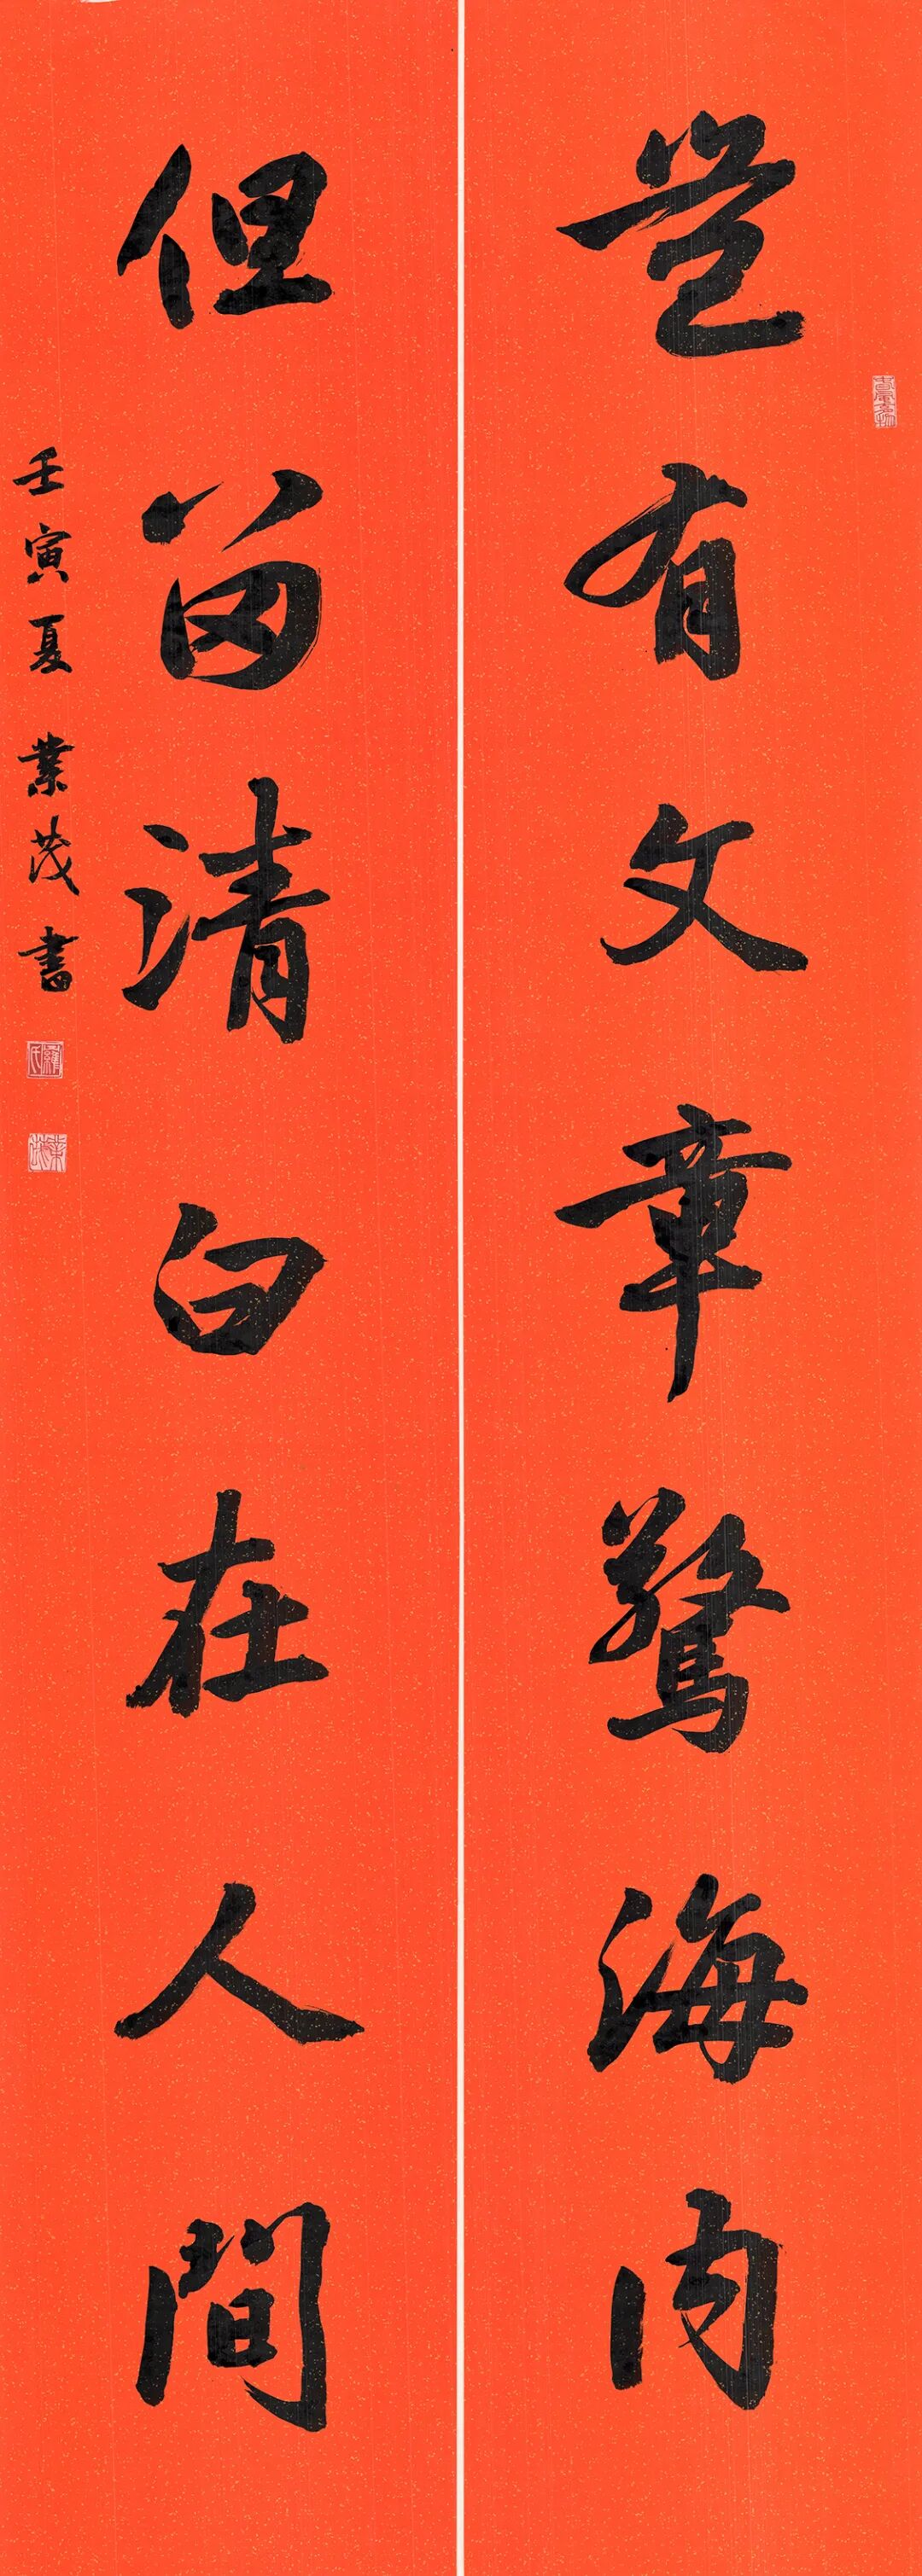 岂有文章驚海内
但留清白在人間
壬寅夏 業茂書